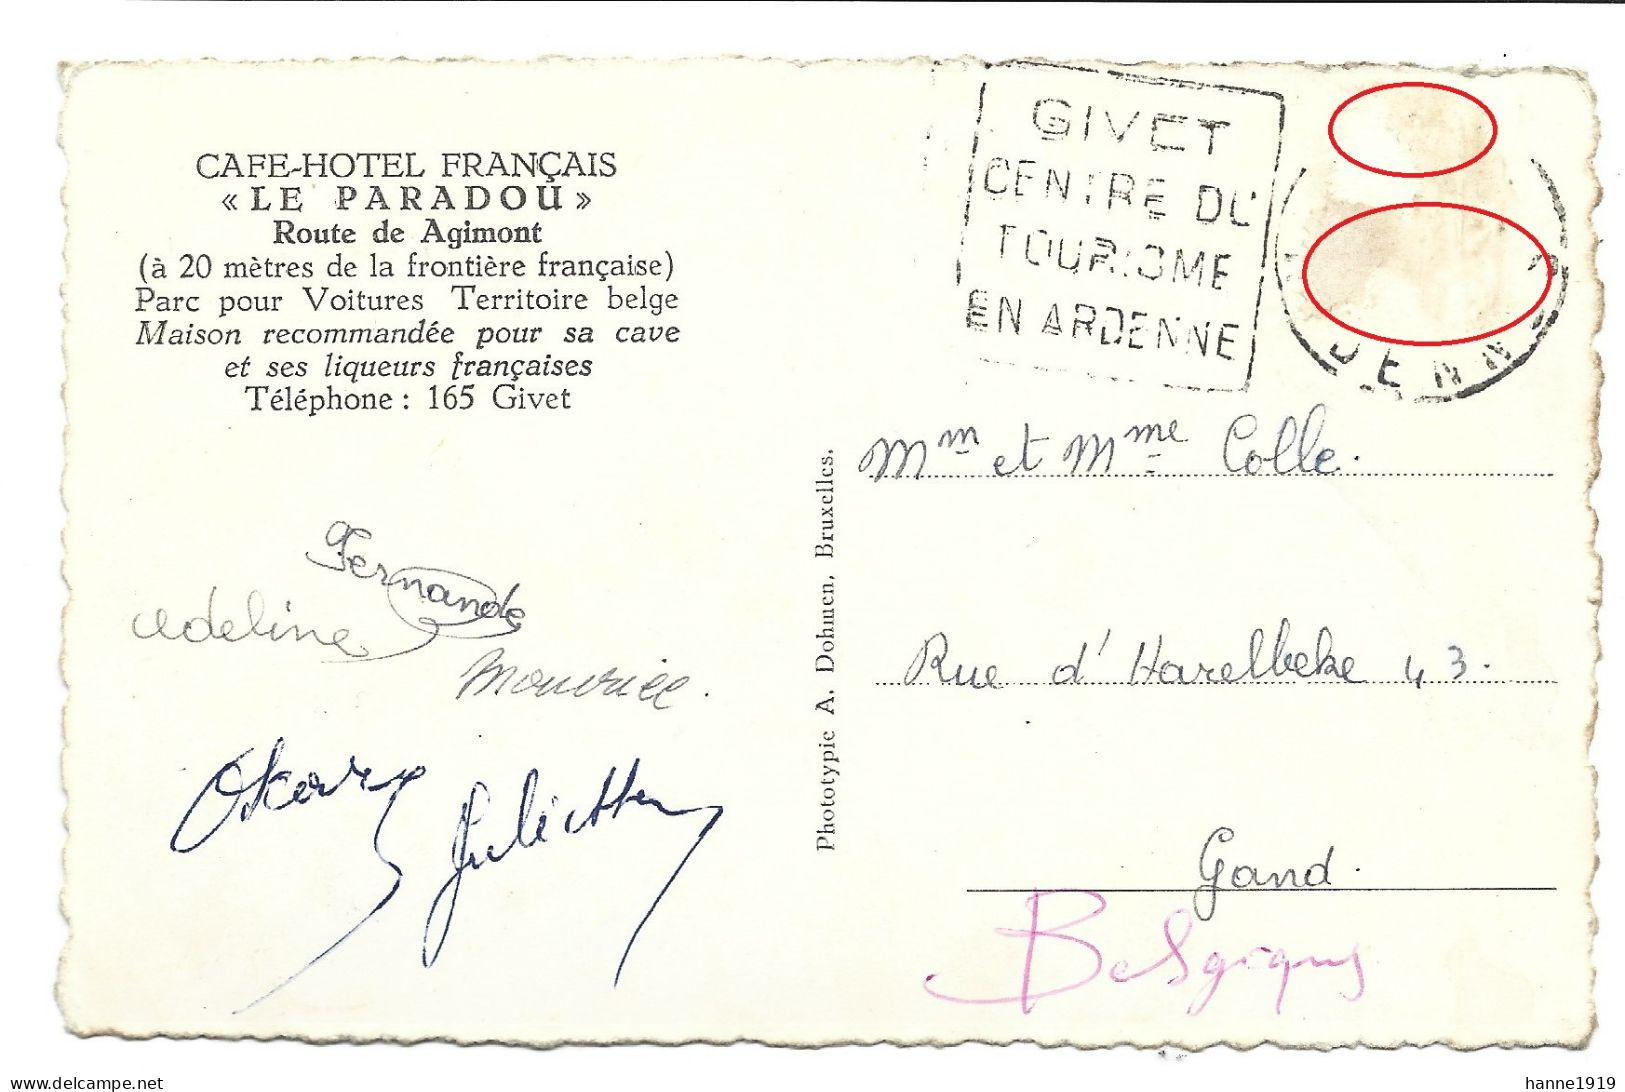 CAFE-HOTEL FRANÇAIS
« LE PARADOU »
Route de Agimont
(à 20 mètres de la frontière française)
Parc pour Voitures Territoire belge
Maison recommandée pour sa cave
et ses liqueurs françaises
Téléphone : 165 Givet
Fernande
Adeline
Mouvriee.
Juliette
Phototypie A. Dohmen, Bruxelles.
GIVET
CENTRE DU
TOURISME
EN ARDENNE
DENN
Mm et Mme Colle.
Rue d'Harelbeke 43.
Gand.
Belgique
hanne1919
delcampe.net